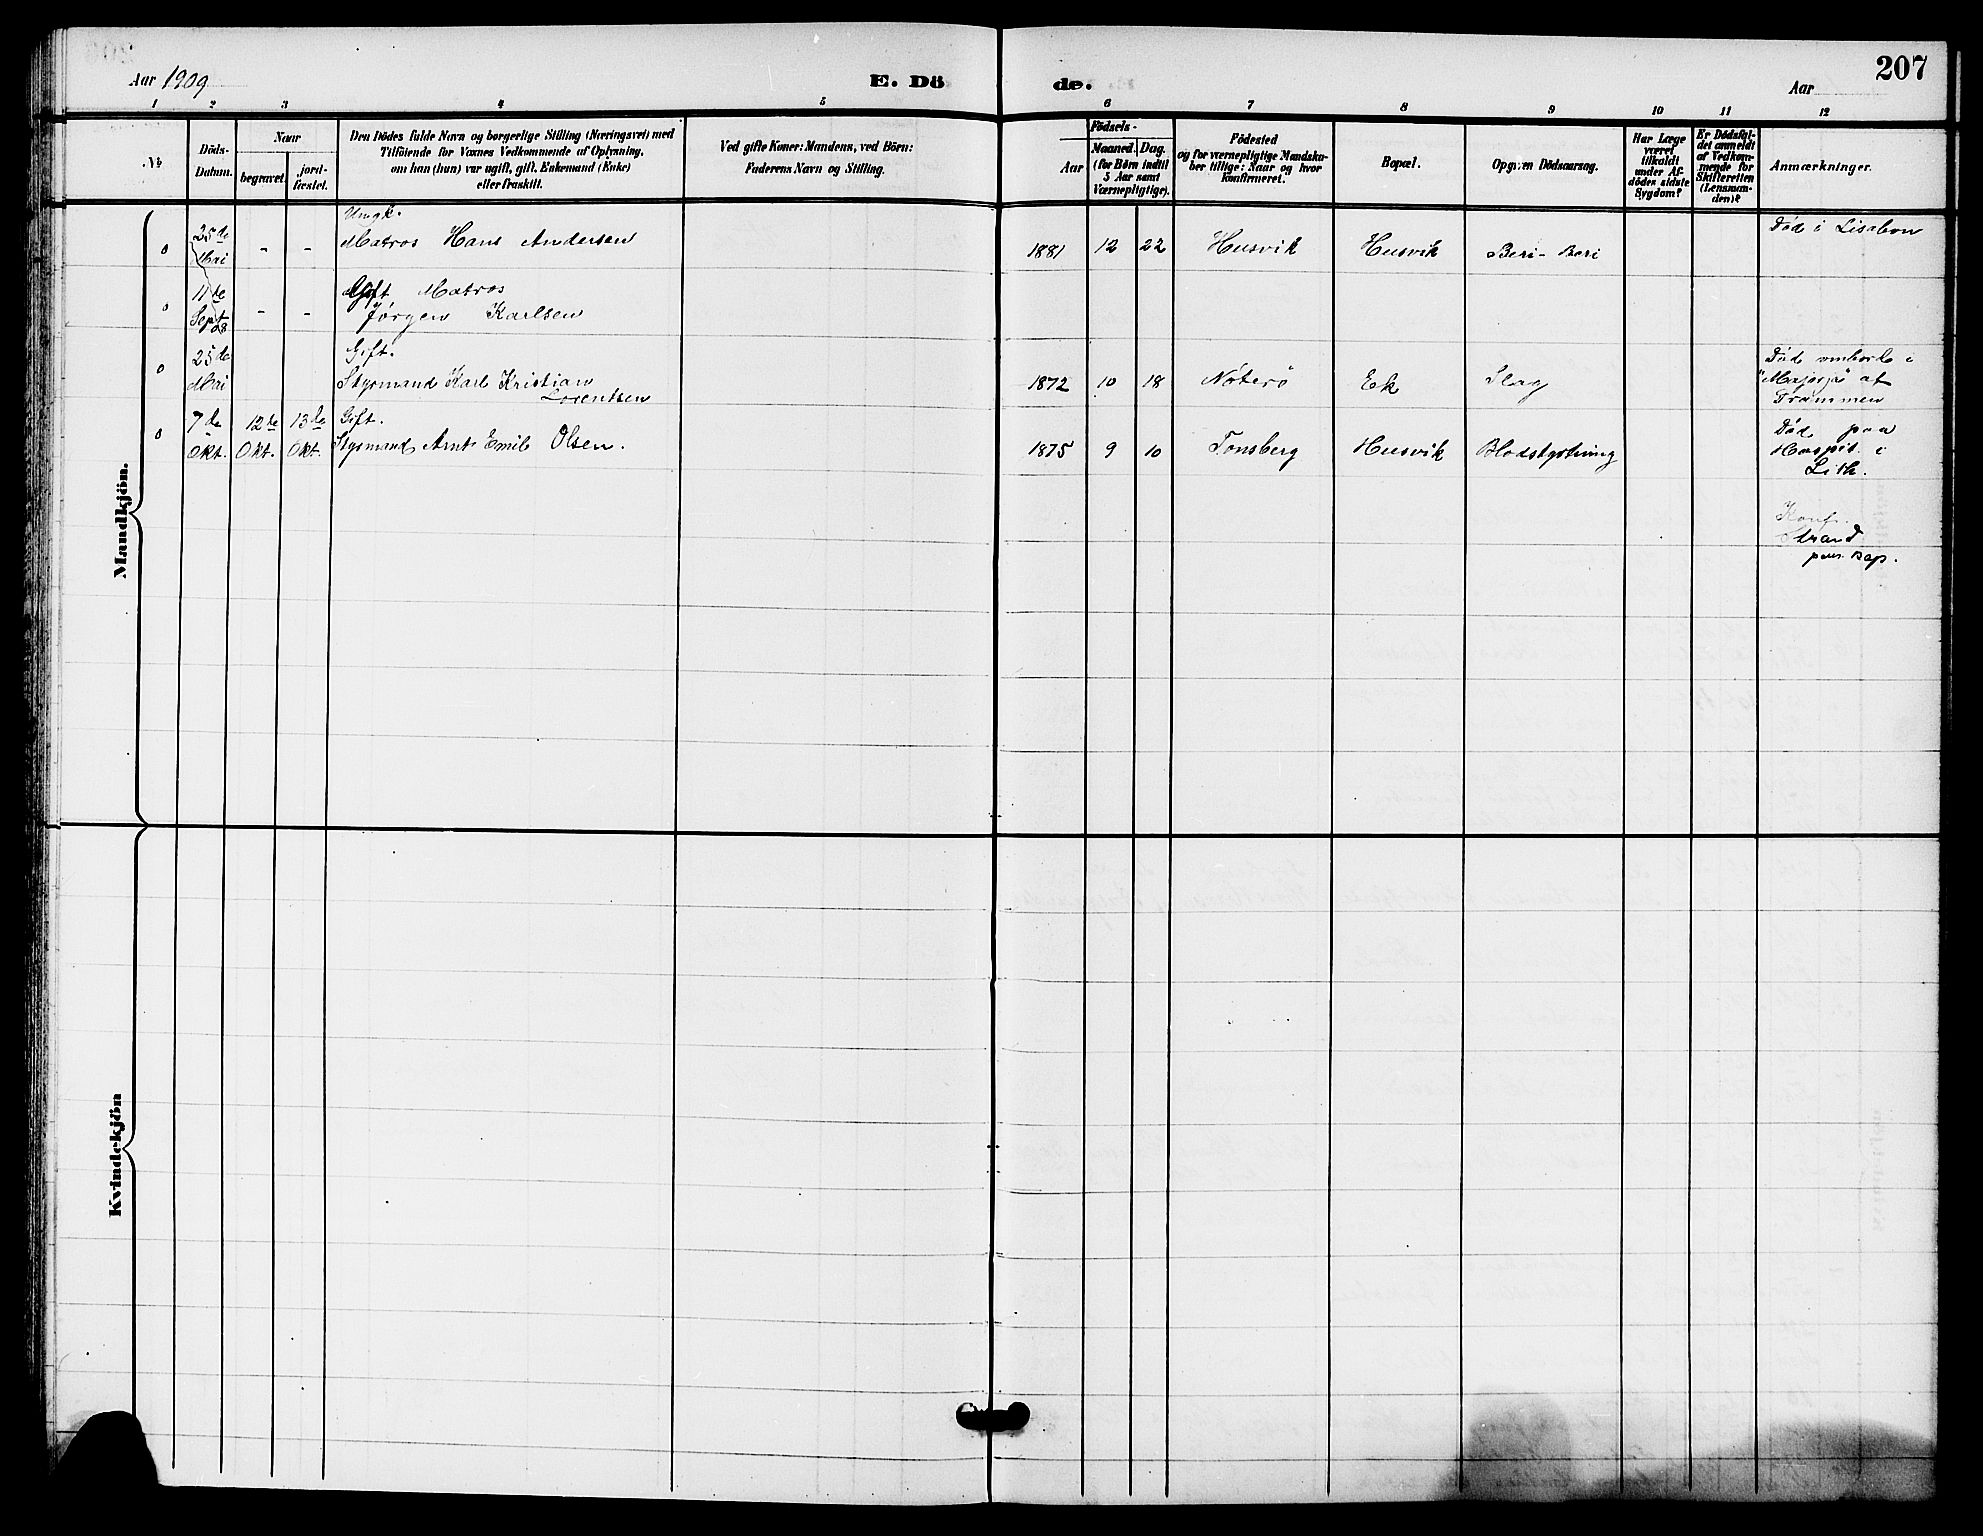 207
Aar 1909
E. Dö
de.
Aar
1 2 3 4 5 6 7 8 9 10 11 12
No
Döds-
Datum.
Naar
begravet.
jord-
fæstet.
Den Dödes fulde Navn og borgerlige Stilling (Næringsvei) med
Tilföiende for Voxnes Vedkommende af Oplysning,
om han (hun) var ugift, gift, Enkemand (Enke)
eller fraskilt.
Ved gifte Koner: Mandens, ved Börn:
Faderens Navn og Stilling.
Födsels-
Aar
Maaned.
Dag.
(for Börn indtil
5 Aar samt
Værnepligtige).
Födested
og for værnepligtige Mandska-
ber tillige: Naar og hvor
konfirmeret.
Bopæl.
Opgiven Dödsaarsag.
Har Læge
været
tilkaldt
under Af-
dödes sidste
Sygdom?
Er Dödsfal-
det anmeldt
af Vedkom-
mende for
Skifteretten
(Lensman-
den)?
Anmærkninger.
Mandkjön.
0 25de Mai - - Ungk.
Matros Hans Andersen
1881 12 22 Husvik Husvik Beri-Beri
Död i Lisabon
0 11te Sept 08 - - Gift Matros
Jörgen Karlsen
0 25de Mai Gift.
Styrmand Karl Kristian
Lorentsen
1872 10 18 Nöterö Ek Slag
Död ombord i
at
0 7de Okt. 12te Okt. 13de Okt. Gift.
Styrmand Arnt Emil Olsen.
1875 9 10 Tonsberg Husvik Blodstyrtning
Död paa
Hospit. i
Lith.
Konf.
Strand
Kvindekjön